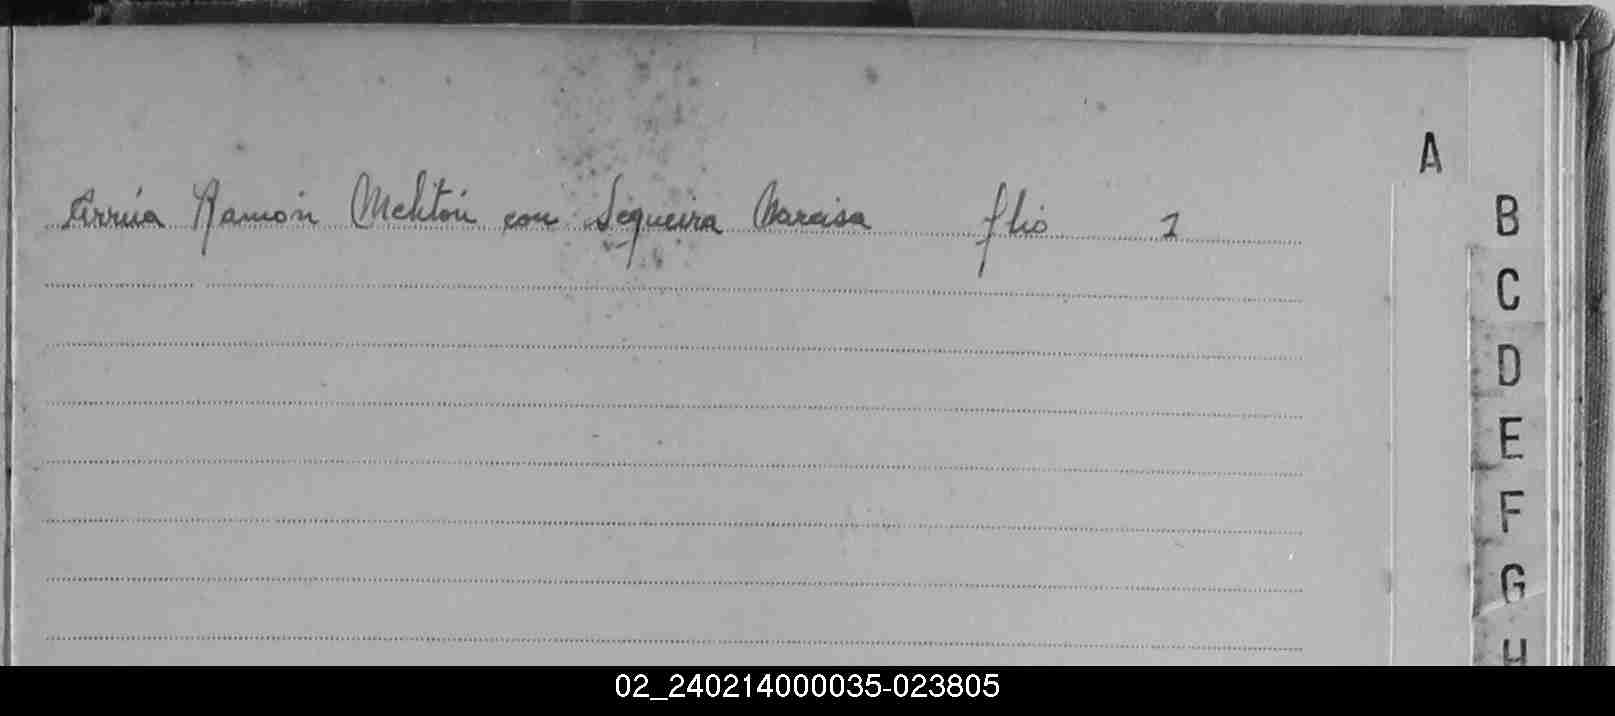 A
Arrúa Ramón Melitón con Sequeira Narcisa flio 1
B
C
D
E
F
G
H
02_240214000035-023805